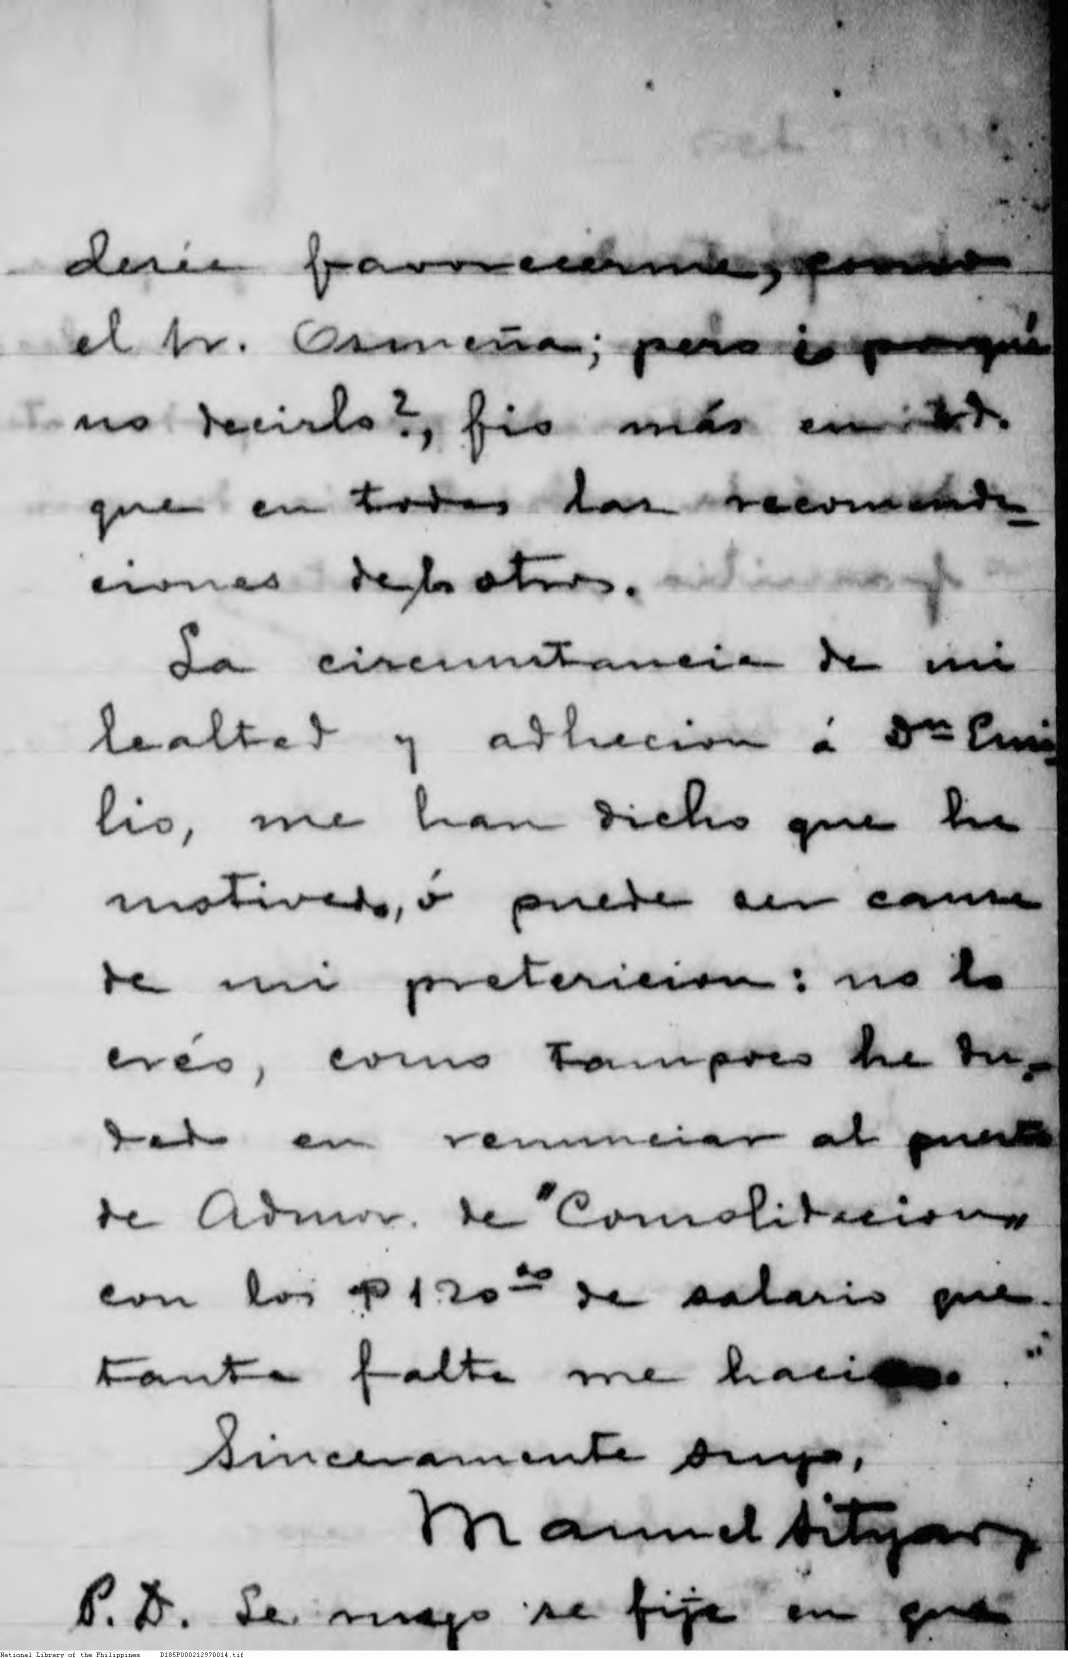 deséa favorecerme, como
el Sr. Osmeña; pero ¿porqué
no decirlo?, fio más en Ud.
que en todas las recomenda-
ciones de los otros.
La circunstancia de mi
lealtad y adhecion á Dn Emi-
lio, me han dicho que ha
motivado, ó puede ser causa
de mi pretericion: no lo
créo, como tampoco he du-
dado en renunciar al puesto
de Admor. de "Consolidacion"
con los ₱120 00 de salario que
tanta falta me hacia.
Sinceramente suyo,
Manuel Sityar
P. D. Le ruego se fije en que
National Library of the Philippines D185P000212970014.tif